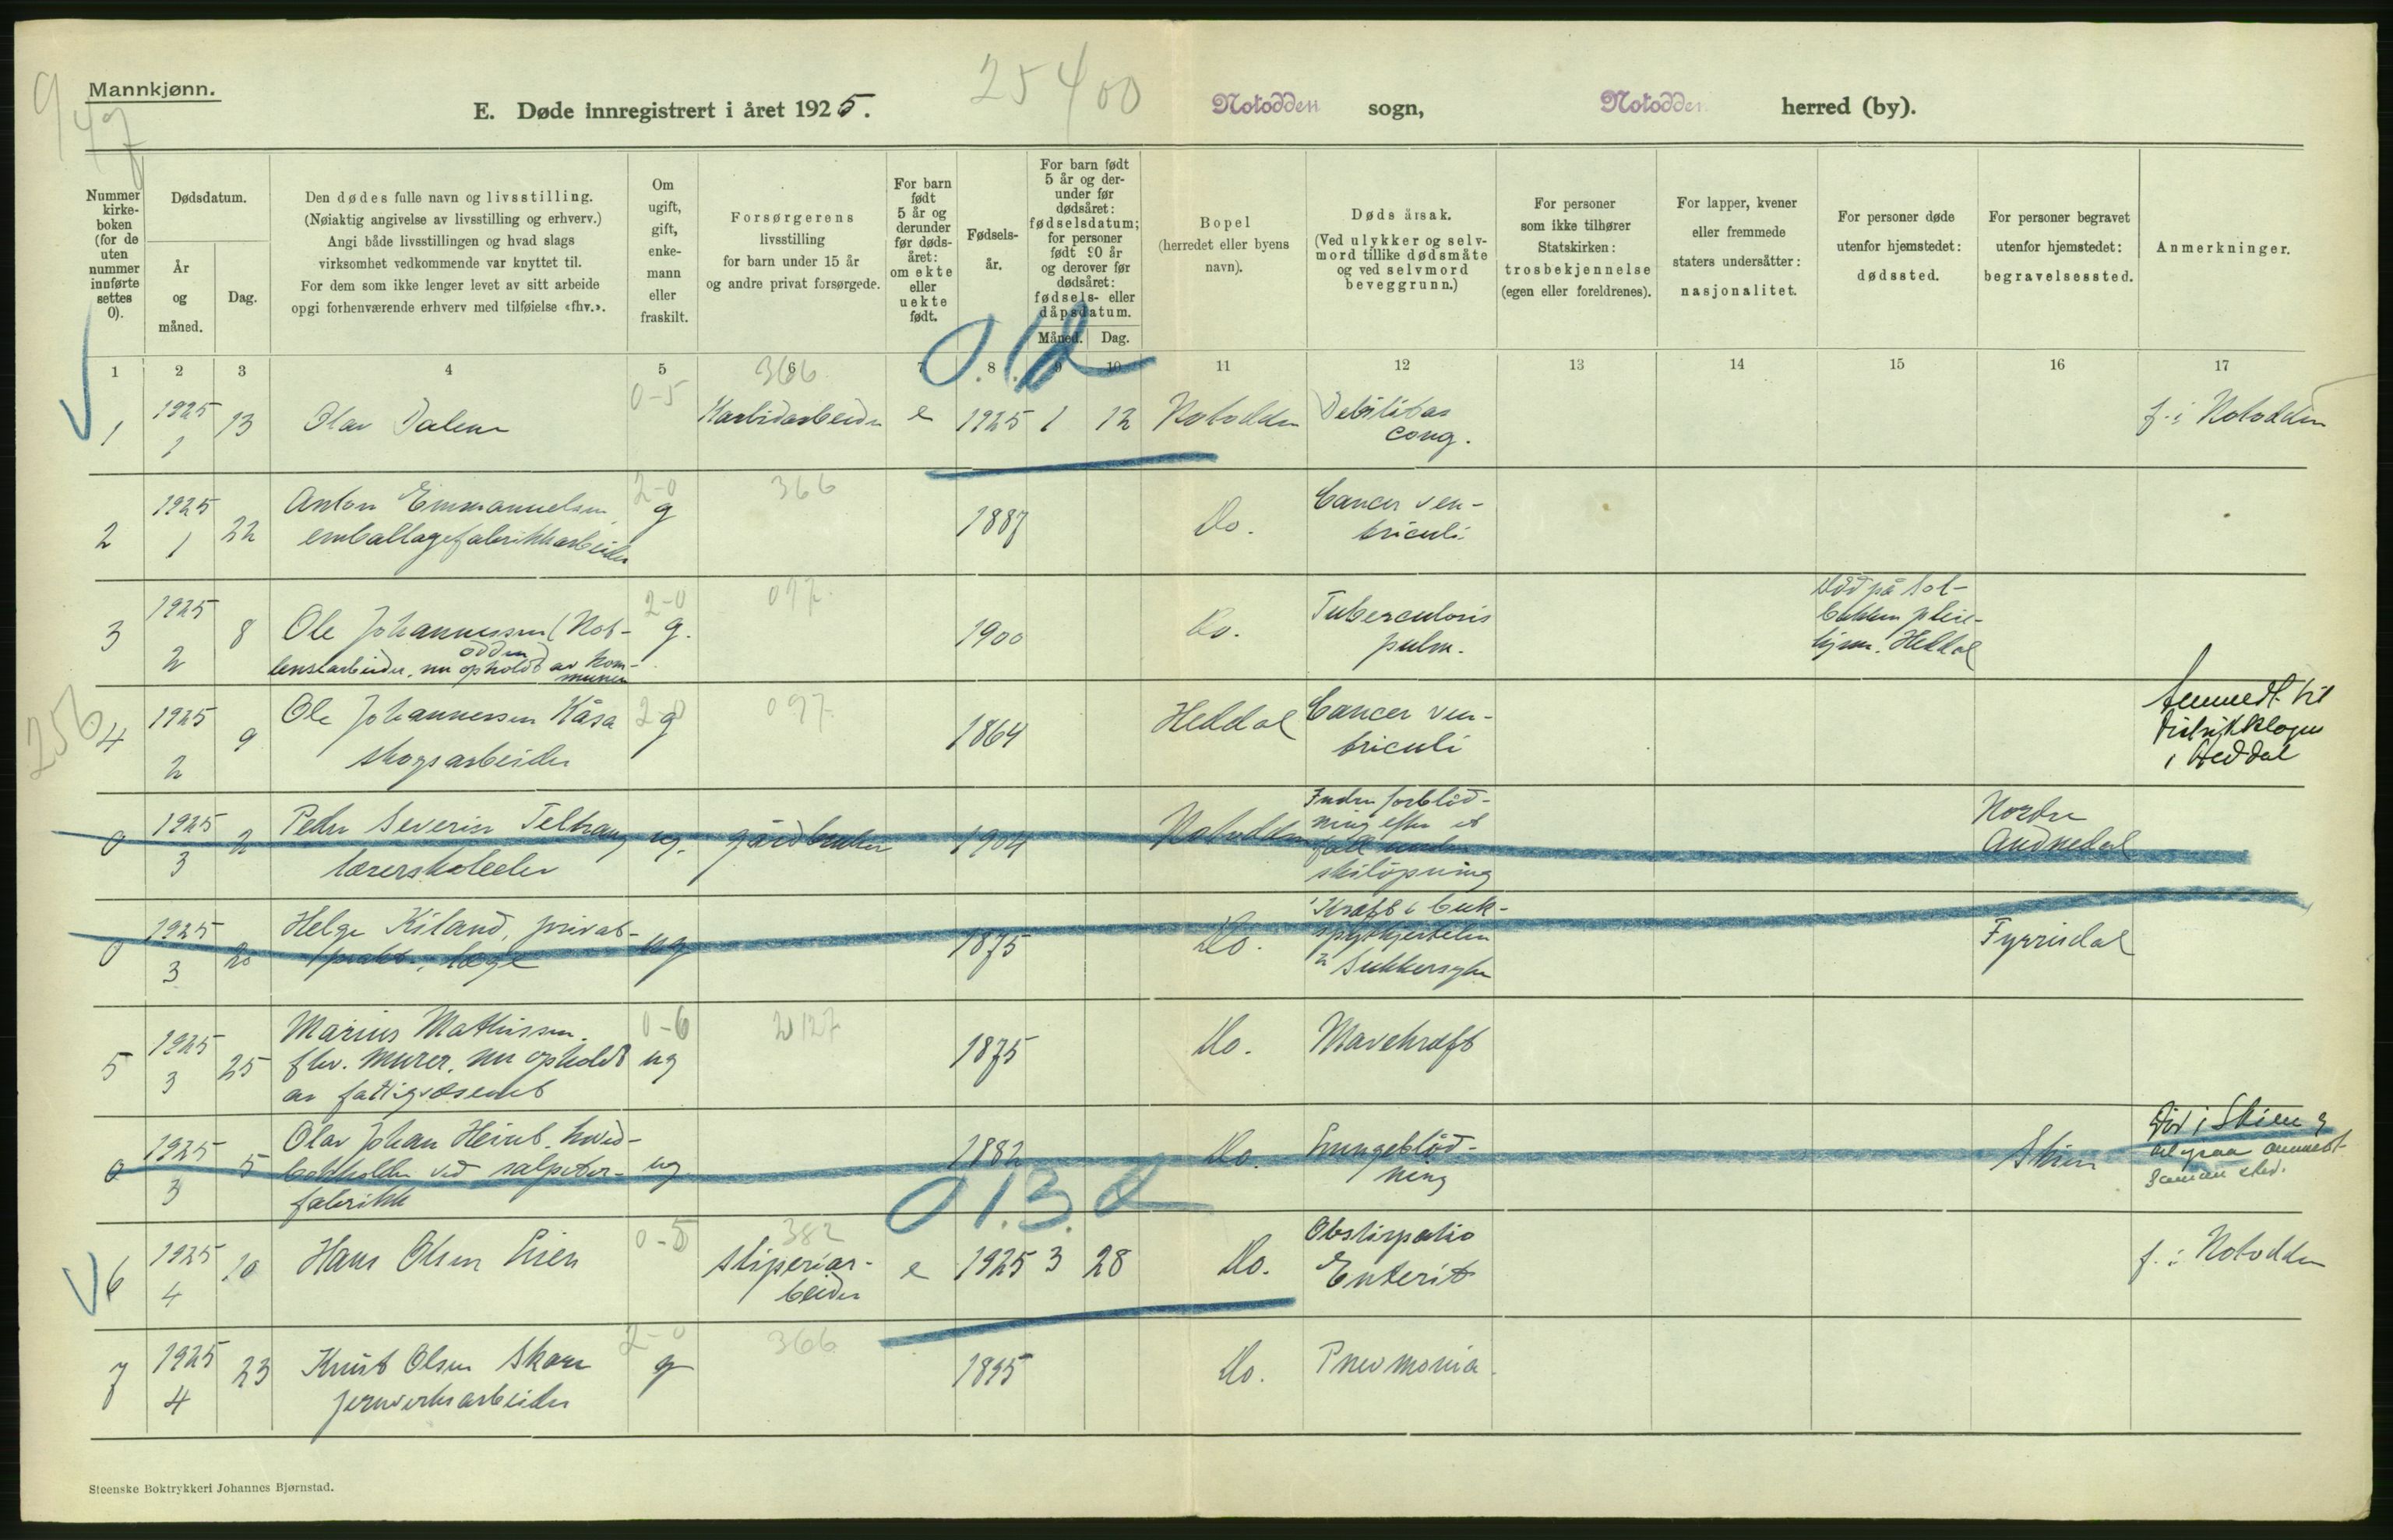 Mannkjønn.
E. Døde innregistrert i året 1925.
25400
Notodden sogn,
Notodden herred (by).
Nummer
kirke-
boken
(for de
uten
nummer
innførte
settes
0).
Dødsdatum.
År
og
måned.
Dag.
Den dødes fulle navn og livsstilling.
(Nøiaktig angivelse av livsstilling og erhverv.)
Angi både livsstillingen og hvad slags
virksomhet vedkommende var knyttet til.
For dem som ikke lenger levet av sitt arbeide
opgi forhenværende erhverv med tilføielse «fhv.».
Om
ugift,
gift,
enke-
mann
eller
fraskilt.
Forsørgerens
livsstilling
for barn under 15 år
og andre privat forsørgede.
For barn
født
5 år og
derunder
før døds-
året:
om ekte
eller
uekte
født.
Fødsels-
år.
For barn født
5 år og der-
under før
dødsåret:
fødselsdatum;
for personer
født 90 år
og derover før
dødsåret:
fødsels- eller
dåpsdatum.
Måned. Dag.
Bopel
(herredet eller byens
navn).
Dødsårsak.
(Ved ulykker og selv-
mord tillike dødsmåte
og ved selvmord
beveggrunn.)
For personer
som ikke tilhører
Statskirken:
trosbekjennelse
(egen eller foreldrenes).
For lapper, kvener
eller fremmede
staters undersåtter:
nasjonalitet.
For personer døde
utenfor hjemstedet:
dødssted.
For personer begravet
utenfor hjemstedet:
begravelsessted.
Anmerkninger.
1 2 3 4 5 6 7 8 9 10 11 12 13 14 15 16 17
0-5 366 0.1.d
1 1925 1 13 Olav Dalene Karbidarbeider e 1925 1 12 Notodden Debilitas
cong.
f. i Notodden
2-0 366
2 1925 1 22 Anton Emmanuelsen g 1887 Do. Cancer ven-
emballagefabrikkarbeider triculi
2-0 097
3 1925 2 8 Ole Johannessen (Not- g. 1900 Do. Tuberculosis
odden)
lensearbeider, nu opholdt av kom-
munen
pulm.
Død på Sol-
bakken pleie-
hjem. Heddal
256
2-0 097
4 1925 2 9 Ole Johannessen Kåsa g 1864 Heddal Cancer ven-
skogsarbeider triculi
Anmeldt til
distriktslegen
i Heddal
0 1925 3 2 Peder Severin ug. gårdbruker 1904 Notodden Indre forblød-
lærerskoleelev
ning efter et
fall under
skiløpning
Nordre
Audnedal
0 1925 3 20 Helge Kiland, privat- ug 1875 Do. Kreft i buk-
prakt. læge
spyttkjertelen
2 Sukkersyke
Fyrrisdal
0-6
5 1925 3 25 Marius Mathissen ug 1875 Do. Mavekreft
fhv. murer, nu opholdt
av fattigvæsenet
0 1925 3 5 Olav Johan ug 1882 Do. Lungeblød-
bokholder ved salpeter-
fabrikk
ning
Skien
Død i Skien
samme sted.
0.1.3.d
0-5 382
6 1925 4 10 Hans Olsen Lien sliperiar-
beider
e 1925 3 28 Do. Obstipatio
Enterit
f. i Notodden
2-0 366
7 1925 4 23 Knut Olsen g 1895 Do. Pneumonia
jernverksarbeider
Steenske Boktrykkeri Johannes Bjørnstad.